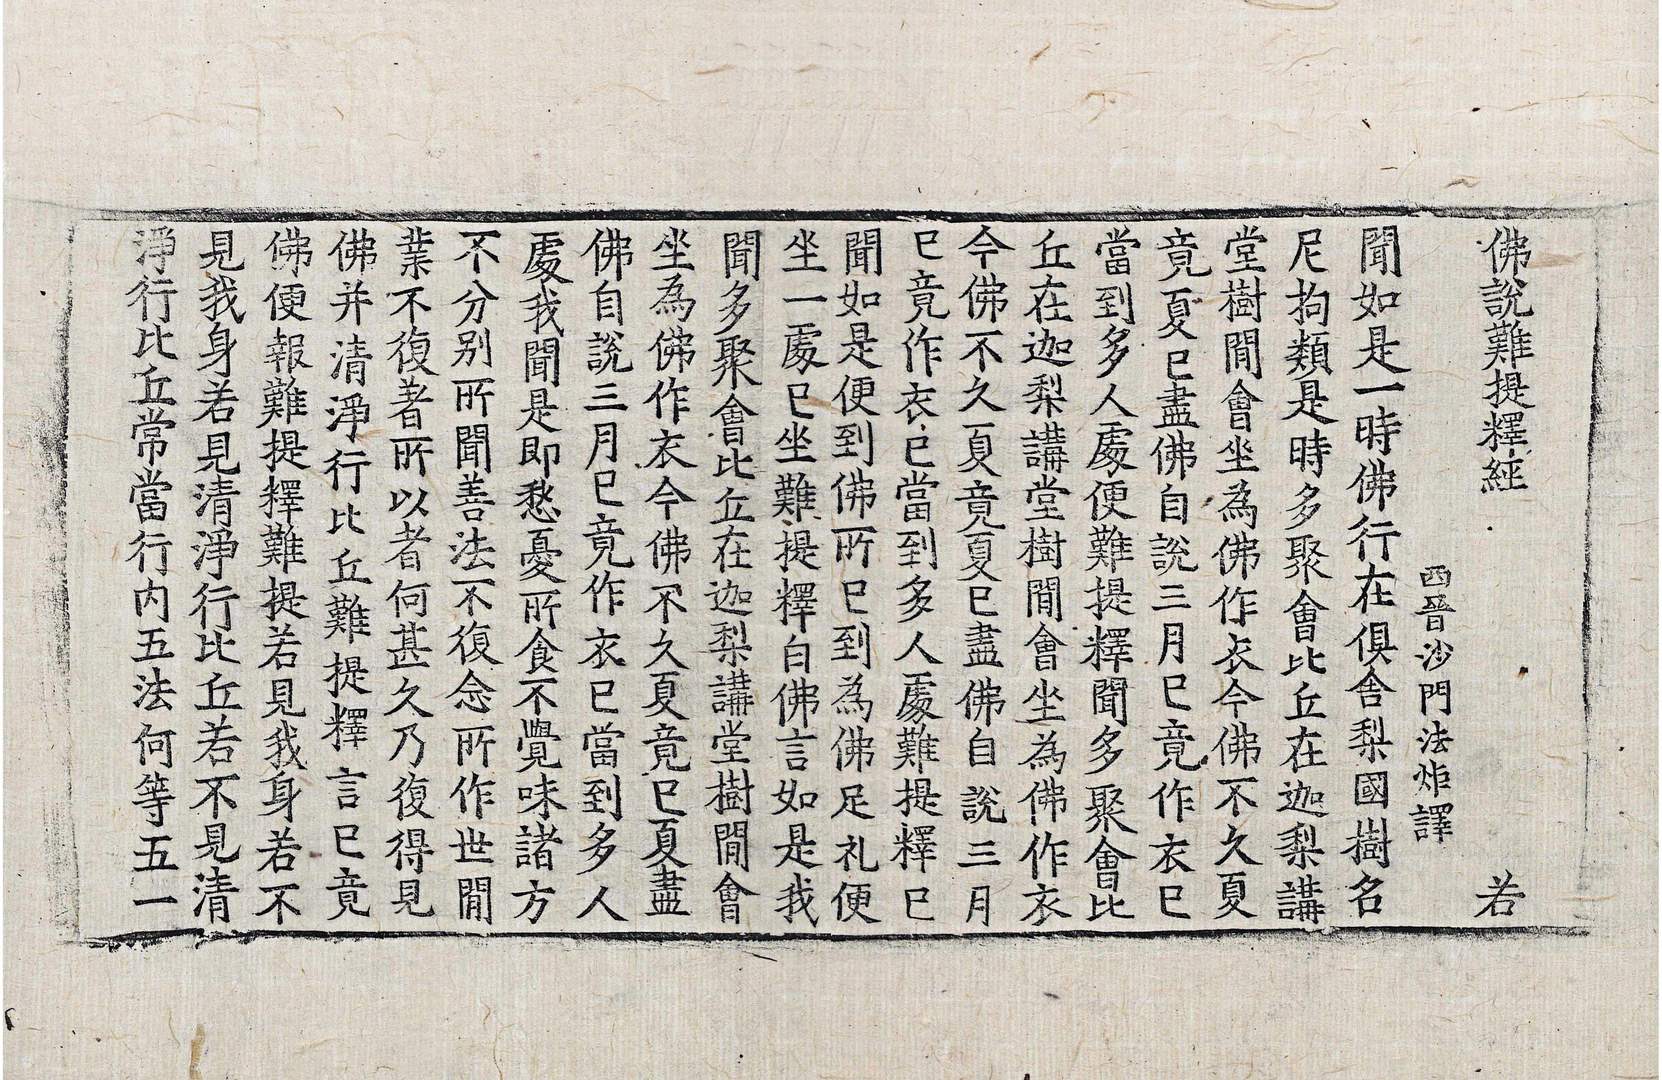 佛說難提釋經 若
西晉沙門法炬譯
聞如是一時佛行在俱舍梨國樹名
尼拘類是時多聚會比丘在迦梨講
堂樹閒會坐為佛作衣今佛不久夏
竟夏已盡佛自說三月已竟作衣已
當到多人處便難提釋聞多聚會比
丘在迦梨講堂樹閒會坐為佛作衣
今佛不久夏竟夏已盡佛自說三月
已竟作衣已當到多人處難提釋已
聞如是便到佛所已到為佛足礼便
坐一處已坐難提釋白佛言如是我
聞多聚會比丘在迦梨講堂樹閒會
坐為佛作衣今佛不久夏竟已夏盡
佛自說三月已竟作衣已當到多人
處我聞是即愁憂所食不覺味諸方
不分別所聞善法不復念所作世閒
業不復著所以者何甚久乃復得見
佛并清淨行比丘難提釋言已竟
佛便報難提釋難提若見我身若不
見我身若見清淨行比丘若不見清
淨行比丘常當行內五法何等五一